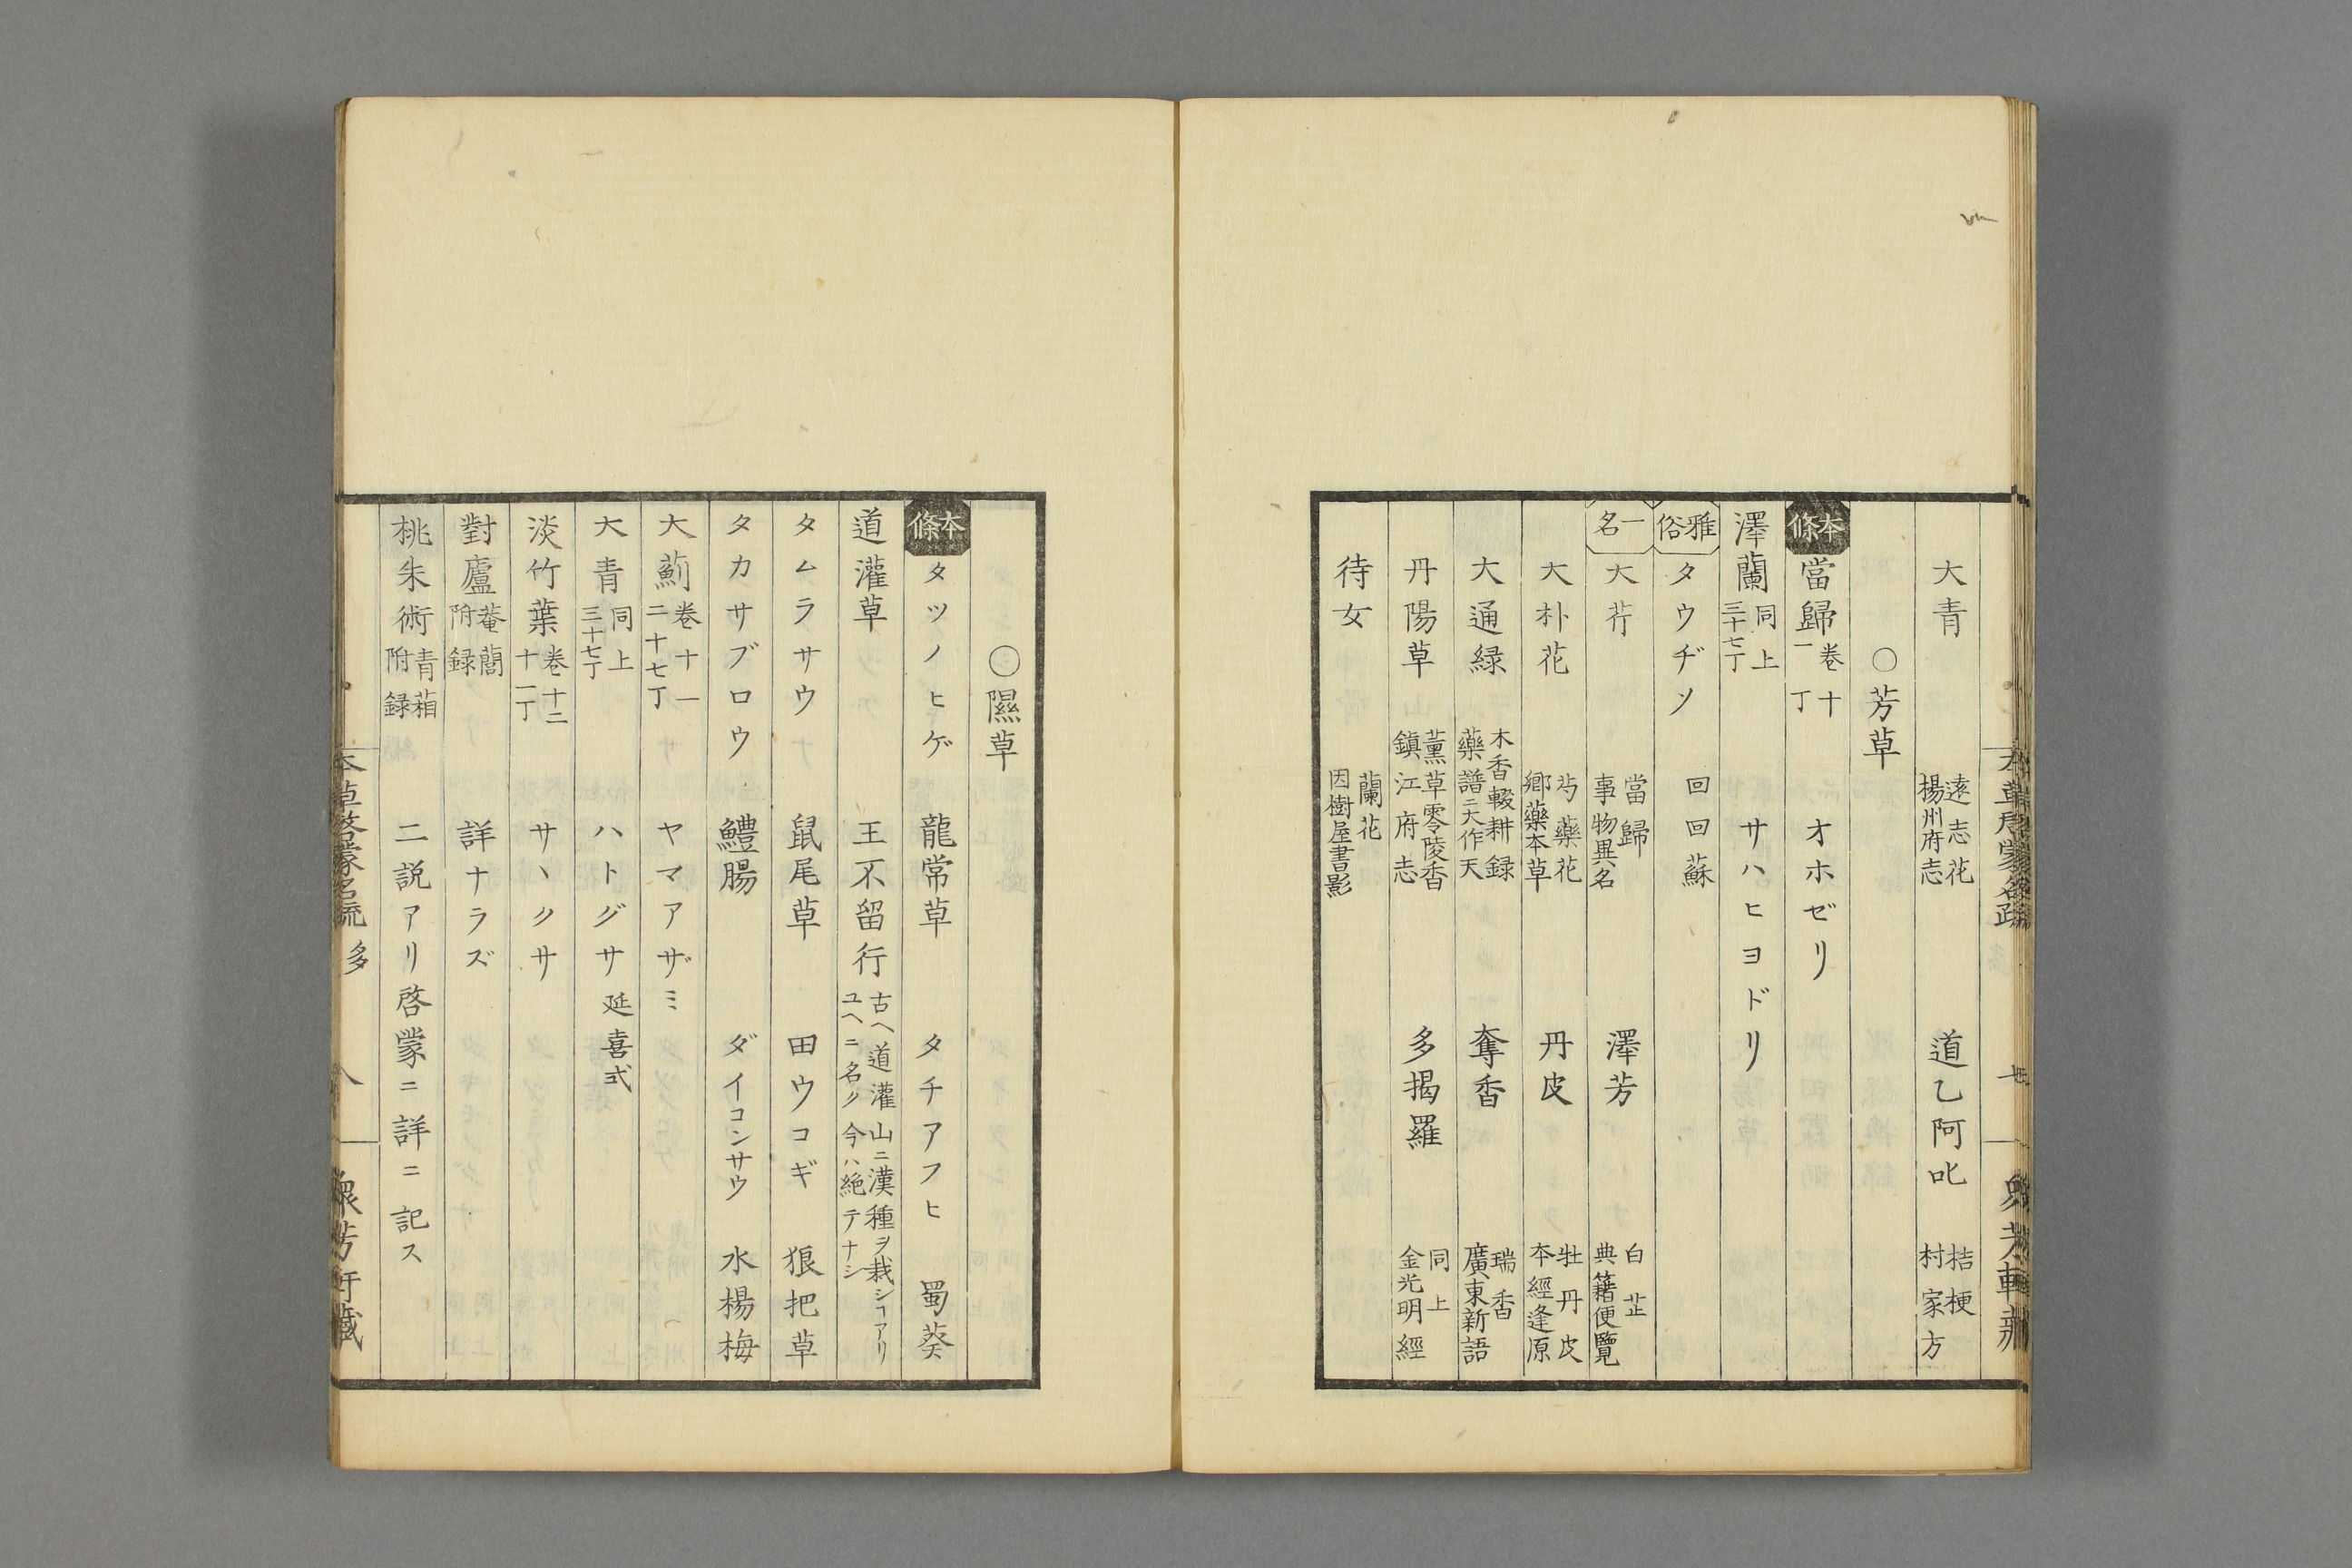 大青　遠志花　楊州府志　道乙阿叱　桔梗　村家方
○芳草
本條　當歸　卷十一丁　オホゼリ
澤蘭　同上三十七丁　サハヒヨドリ
雅俗　タウヂソ　回回蘇
一名　大芹　當歸　事物異名　澤芳　白芷　典籍便覽
大朴花　芍藥花　鄉藥本草　丹皮　牡丹皮　本經逢原
大通緑　木香輟耕録　藥譜ニ天作天　奪香　瑞香　廣東新語
丹陽草　薫草零陵香　鎮江府志　多揭羅　同上　金光明經
待女　蘭花　因樹屋書影
○隰草
本條　タツノヒゲ　龍常草　タチアフヒ　蜀葵
道灌草　王不留行　古ヘ道灌山ニ漢種ヲ栽シヿアリ　ユヘニ名ク今ハ絶テナシ
タムラサウ　鼠尾草　田ウコギ　狼把草
タカサブロウ　鱧腸　ダイコンサウ　水楊梅
大薊　卷十一　二十七丁　ヤマアザミ
大青　同上　三十七丁　ハトグサ　延喜式
淡竹葉　卷十二　十一丁　サヽクサ
對廬　菴䕡　附録　詳ナラズ
桃朱術　青葙　附録　二説アリ啓蒙ニ詳ニ記ス
本草啓蒙名疏　多　八　　芳軒藏